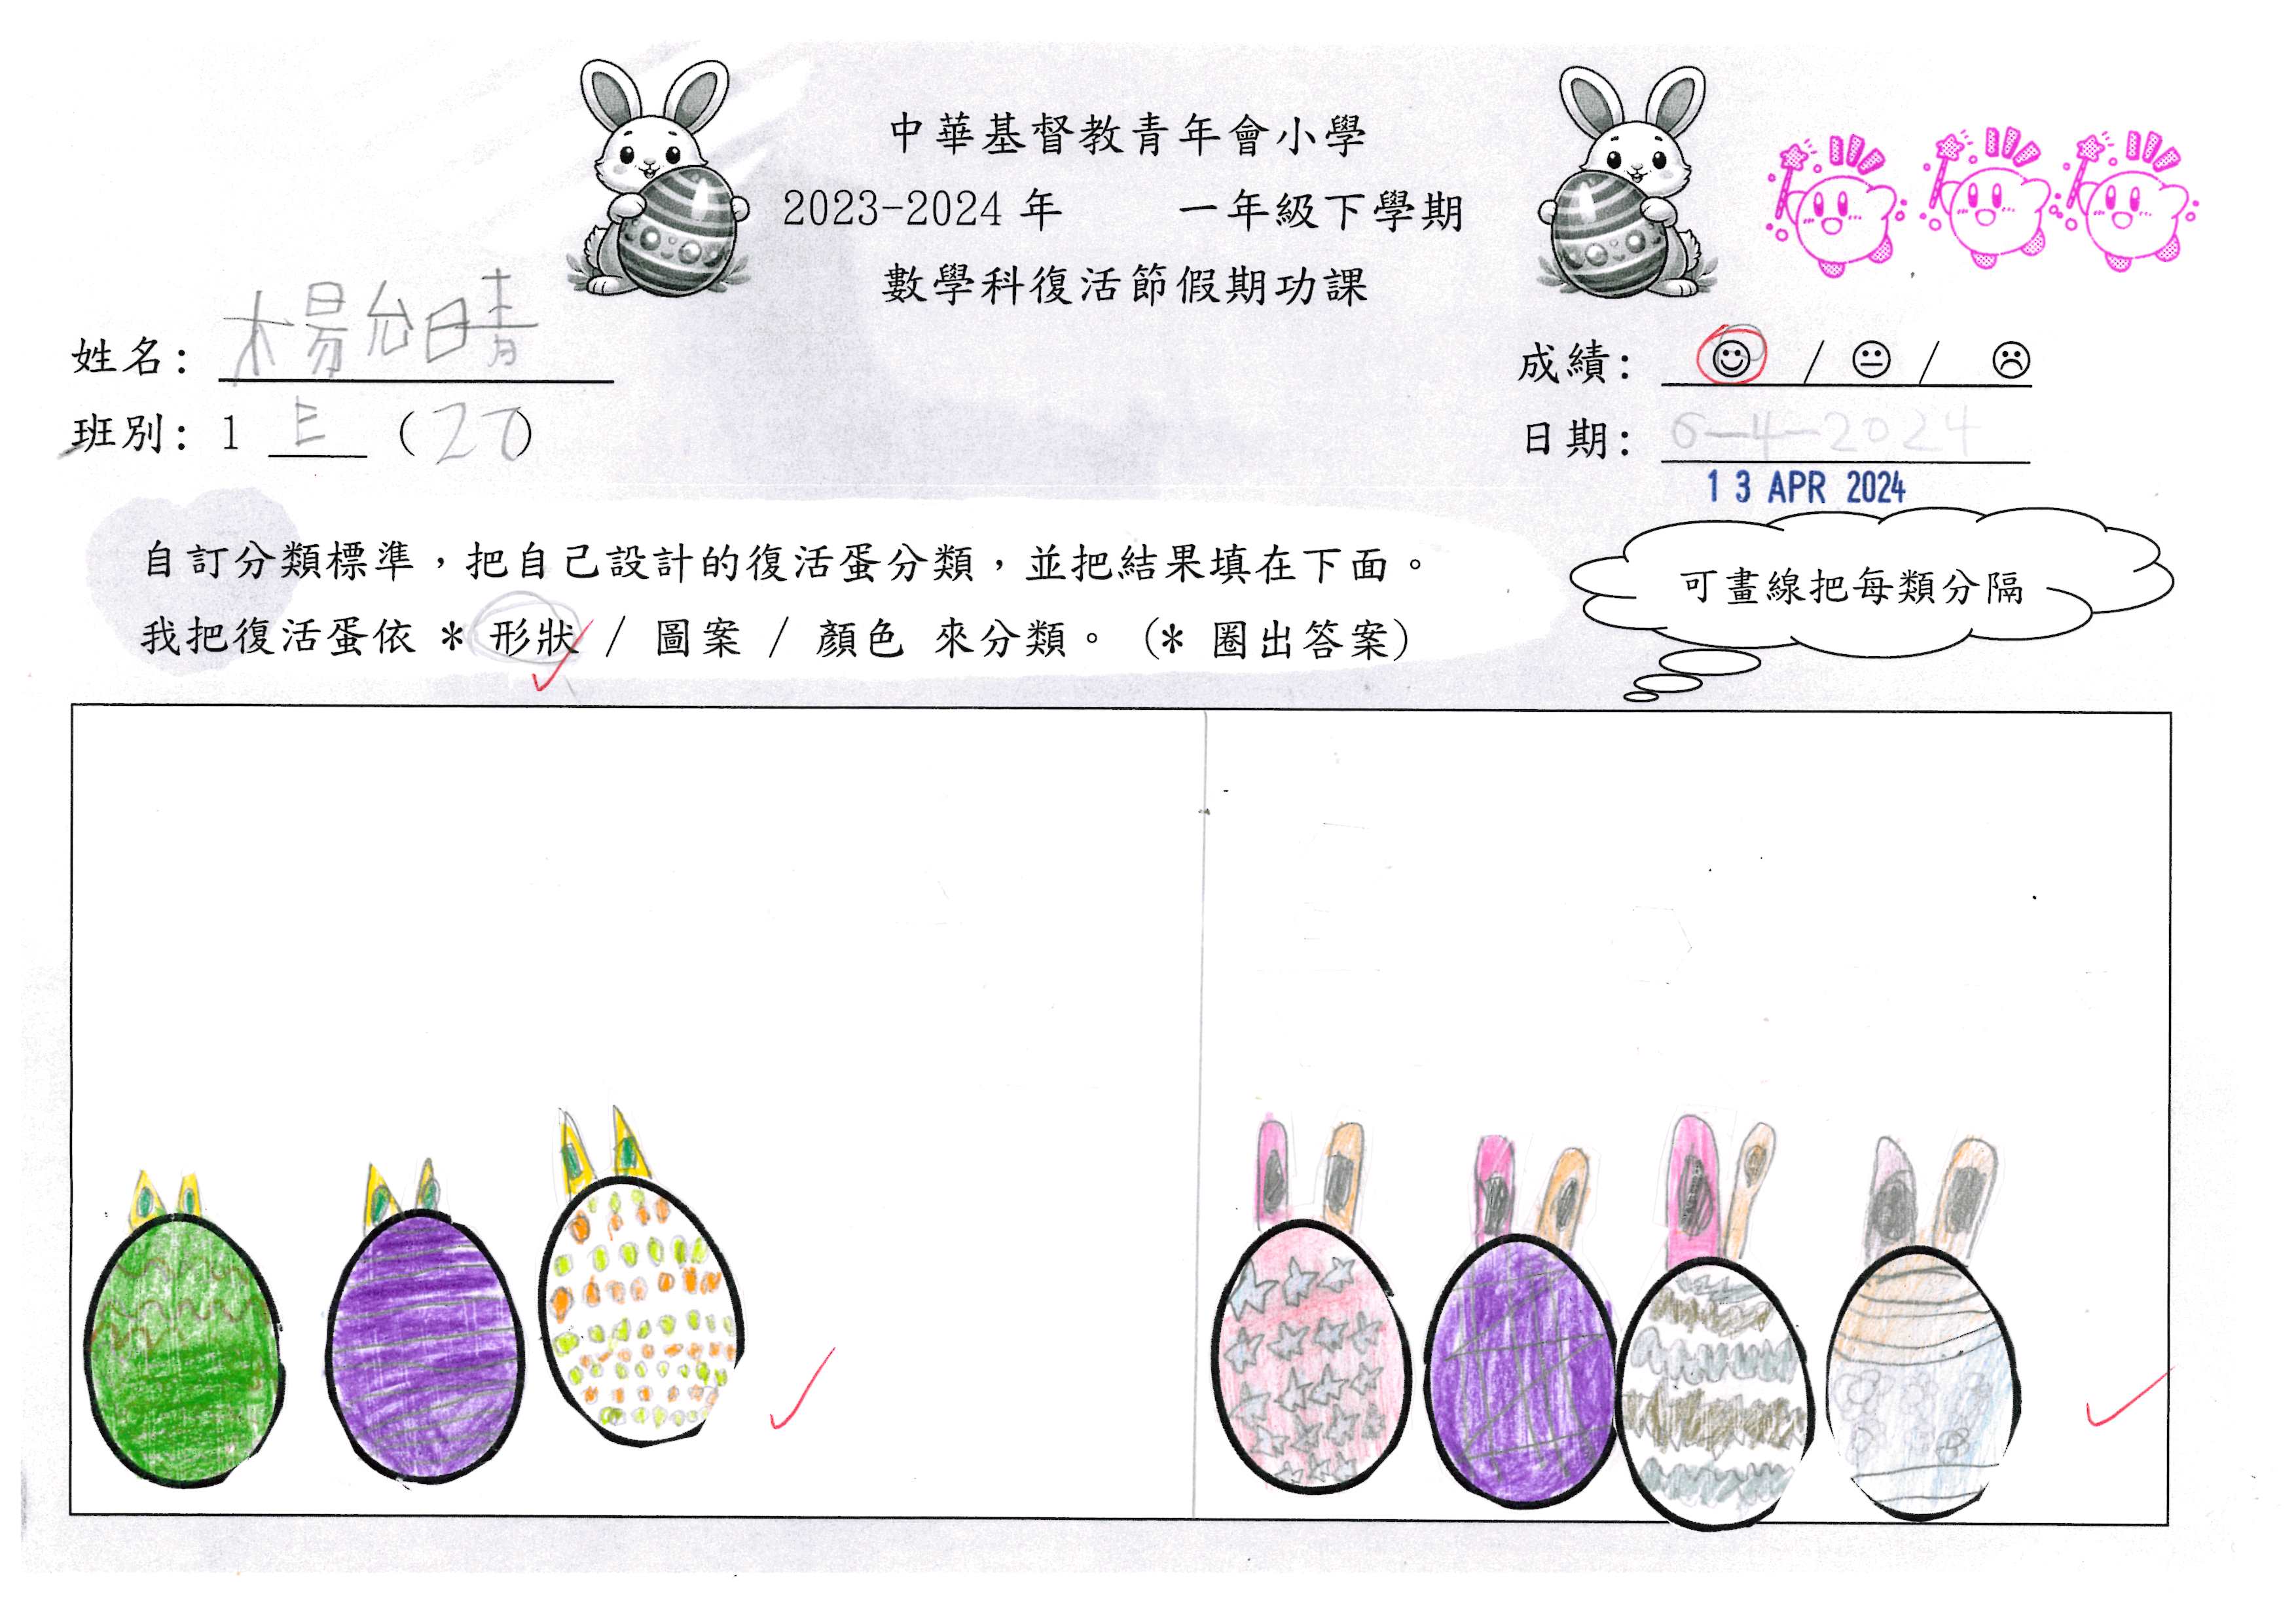 中華基督教青年會小學
2023-2024 年 一年級下學期
數學科復活節假期功課
姓名： 楊
成績： ☺ / 😐 / ☹
班別： 1 E ( )
日期： 6-4-2024
13 APR 2024
自訂分類標準，把自己設計的復活蛋分類，並把結果填在下面。
我把復活蛋依 * 形狀 / 圖案 / 顏色 來分類。 (* 圈出答案)
可畫線把每類分隔